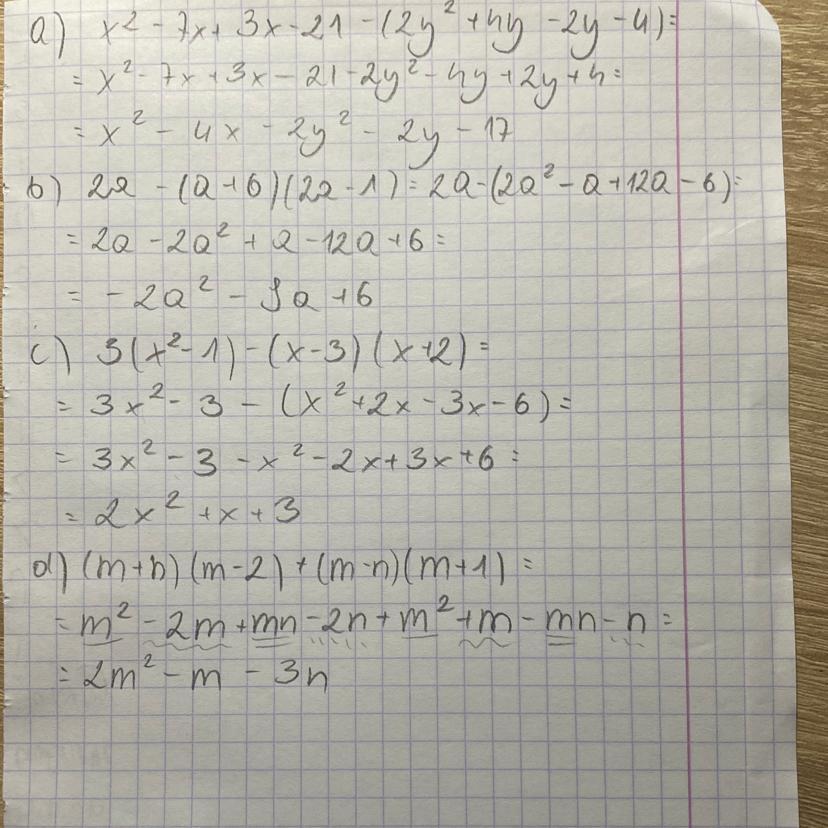 a) x² - 7x + 3x - 21 - (2y² + 4y - 2y - 4) =
= x² - 7x + 3x - 21 - 2y² - 4y + 2y + 4 =
= x² - 4x - 2y² - 2y - 17
b) 2a - (a + 6)(2a - 1) = 2a - (2a² - a + 12a - 6) =
= 2a - 2a² + a - 12a + 6 =
= - 2a² - 9a + 6
c) 3(x² - 1) - (x - 3)(x + 2) =
= 3x² - 3 - (x² + 2x - 3x - 6) =
= 3x² - 3 - x² - 2x + 3x + 6 =
= 2x² + x + 3
d) (m + n)(m - 2) + (m - n)(m + 1) =
= m² - 2m + mn - 2n + m² + m - mn - n =
= 2m² - m - 3n